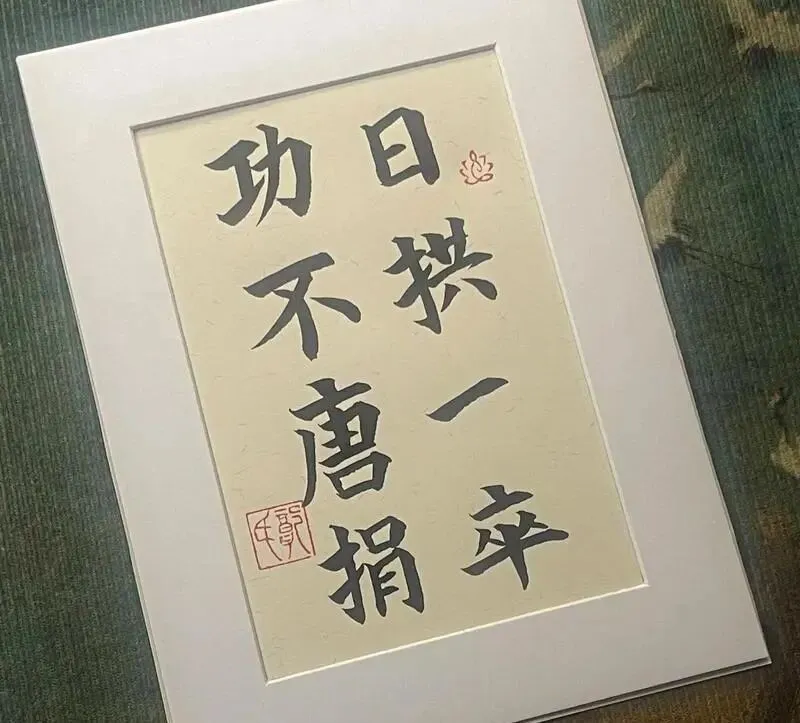 日拱一卒
功不唐捐
郭氏